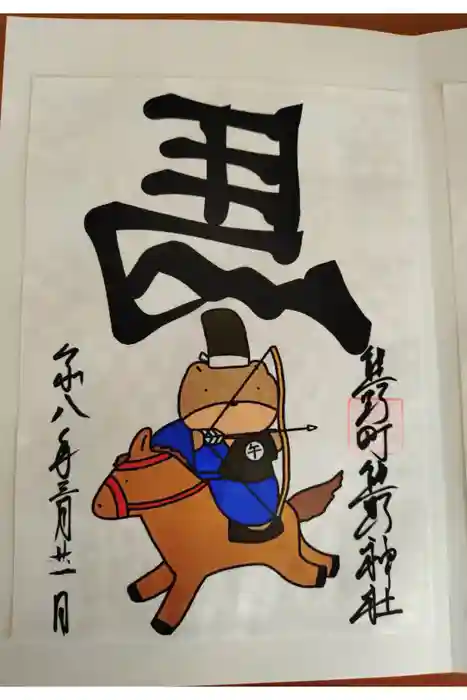 馬
熊野町熊野神社
午
令和八年三月廿一日